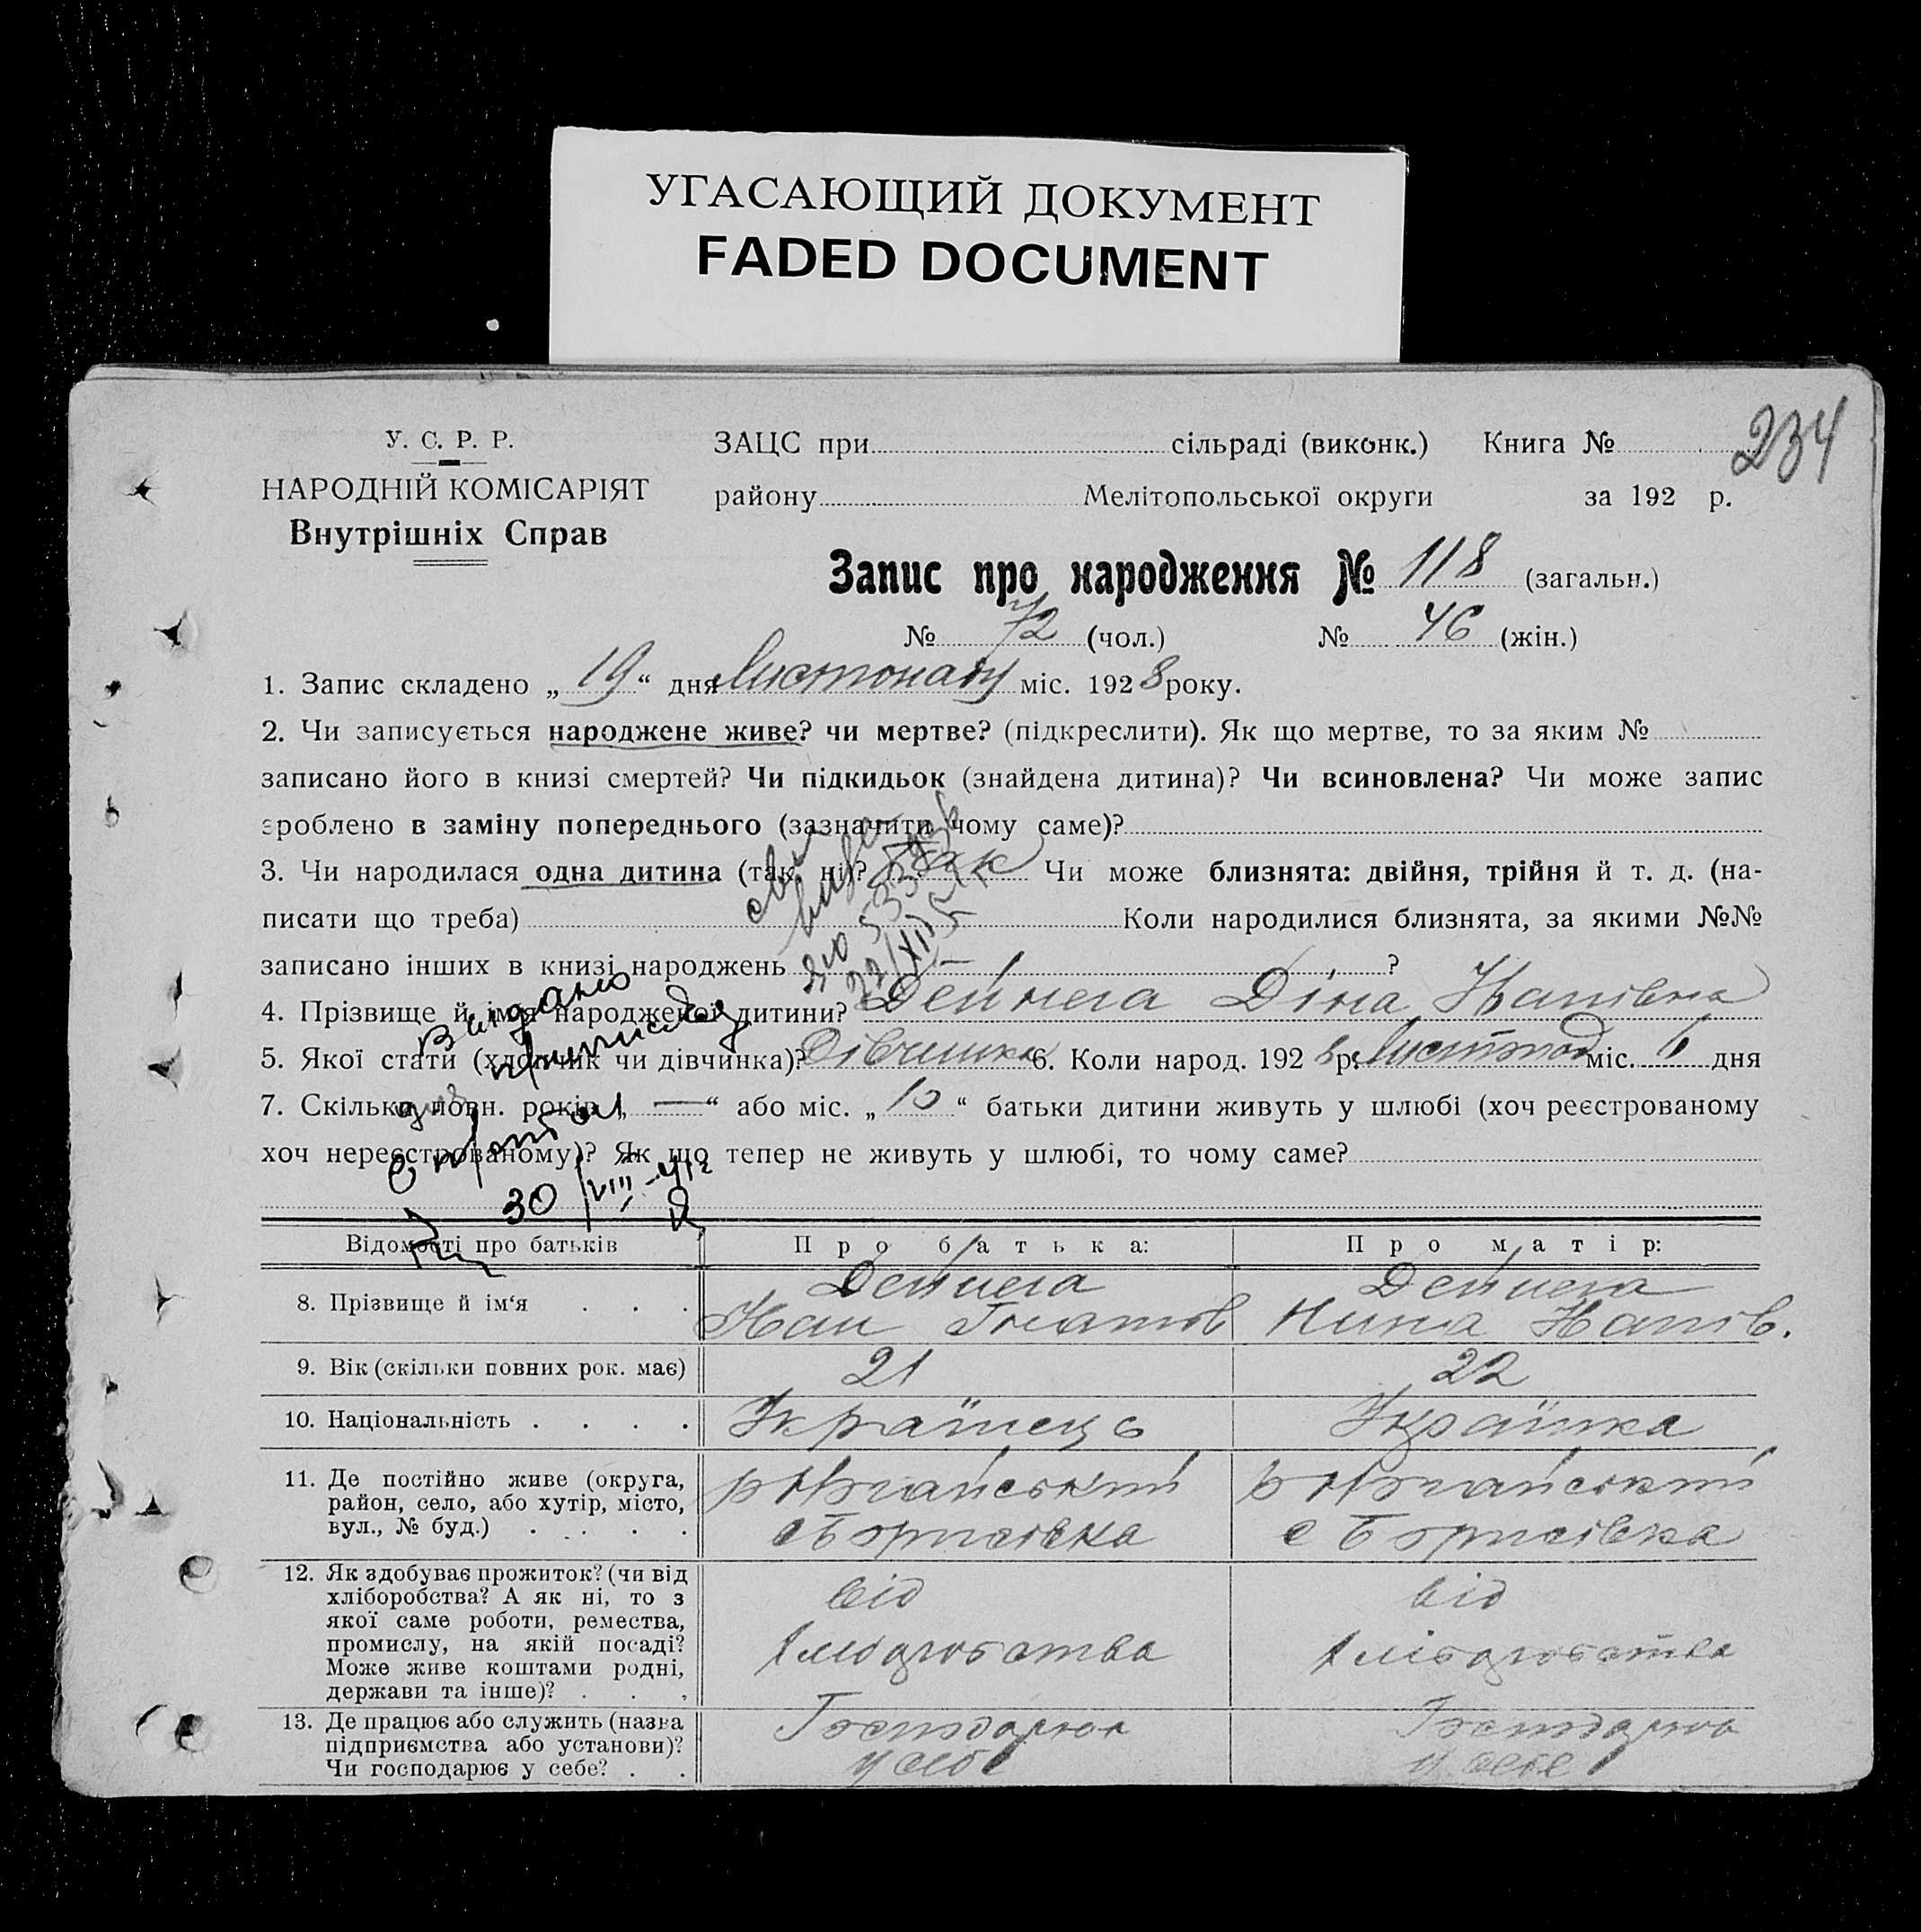 УГАСАЮЩИЙ ДОКУМЕНТ
FADED DOCUMENT
234
У. С. Р. Р.
НАРОДНІЙ КОМІСАРІЯТ
Внутрішніх Справ
ЗАЦС при сільраді (виконк.) Книга №
району Мелітопольської округи за 192 р.
Запис про народження № 118 (загальн.)
№ 72 (чол.) № 46 (жін.)
1. Запис складено „19“ дня Листопаду міс. 1928 року.
2. Чи записується народжене живе? чи мертве? (підкреслити). Як що мертве, то за яким №
записано його в книзі смертей? Чи підкидьок (знайдена дитина)? Чи всиновлена? Чи може запис
зроблено в заміну попереднього (зазначити чому саме)?
3. Чи народилася одна дитина (так, ні)? Так Чи може близнята: двійня, трійня й т. д. (на-
писати що треба) Коли народилися близнята, за якими №№
записано інших в книзі народжень — ?
4. Прізвище й ім'я народженої дитини? Дейнега Діна
5. Якої стати (хлопчик чи дівчинка)? Дівчинка 6. Коли народ. 1928 р. Листопад міс. 6 дня
7. Скільки повн. років „—“ або міс. „10“ батьки дитини живуть у шлюбі (хоч реєстрованому
хоч нереєстрованому)? Як що тепер не живуть у шлюбі, то чому саме?
Видано
30/VIII-41г
Відомості про батьків Про батька: Про матір:
8. Прізвище й ім‘я . . . Дейнега Дейнега
Гнатов Нина
9. Вік (скільки повних рок. має) 21 22
10. Національність . . . . Українець Українка
11. Де постійно живе (округа,
район, село, або хутір, місто,
вул., № буд.) . . . .
р Ногайський р Ногайський
с Борисівка с Борисівка
12. Як здобуває прожиток? (чи від
хліборобства? А як ні, то з
якої саме роботи, ремества,
промислу, на якій посаді?
Може живе коштами родні,
держави та інше)? . . .
від від
хліборобства хліборобства
13. Де працює або служить (назва
підприємства або установи)?
Чи господарює у себе? . .
Господарює Господарює
у себе у себе